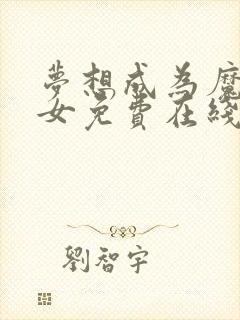 夢想成為魔
女免費在綫
劉智宇